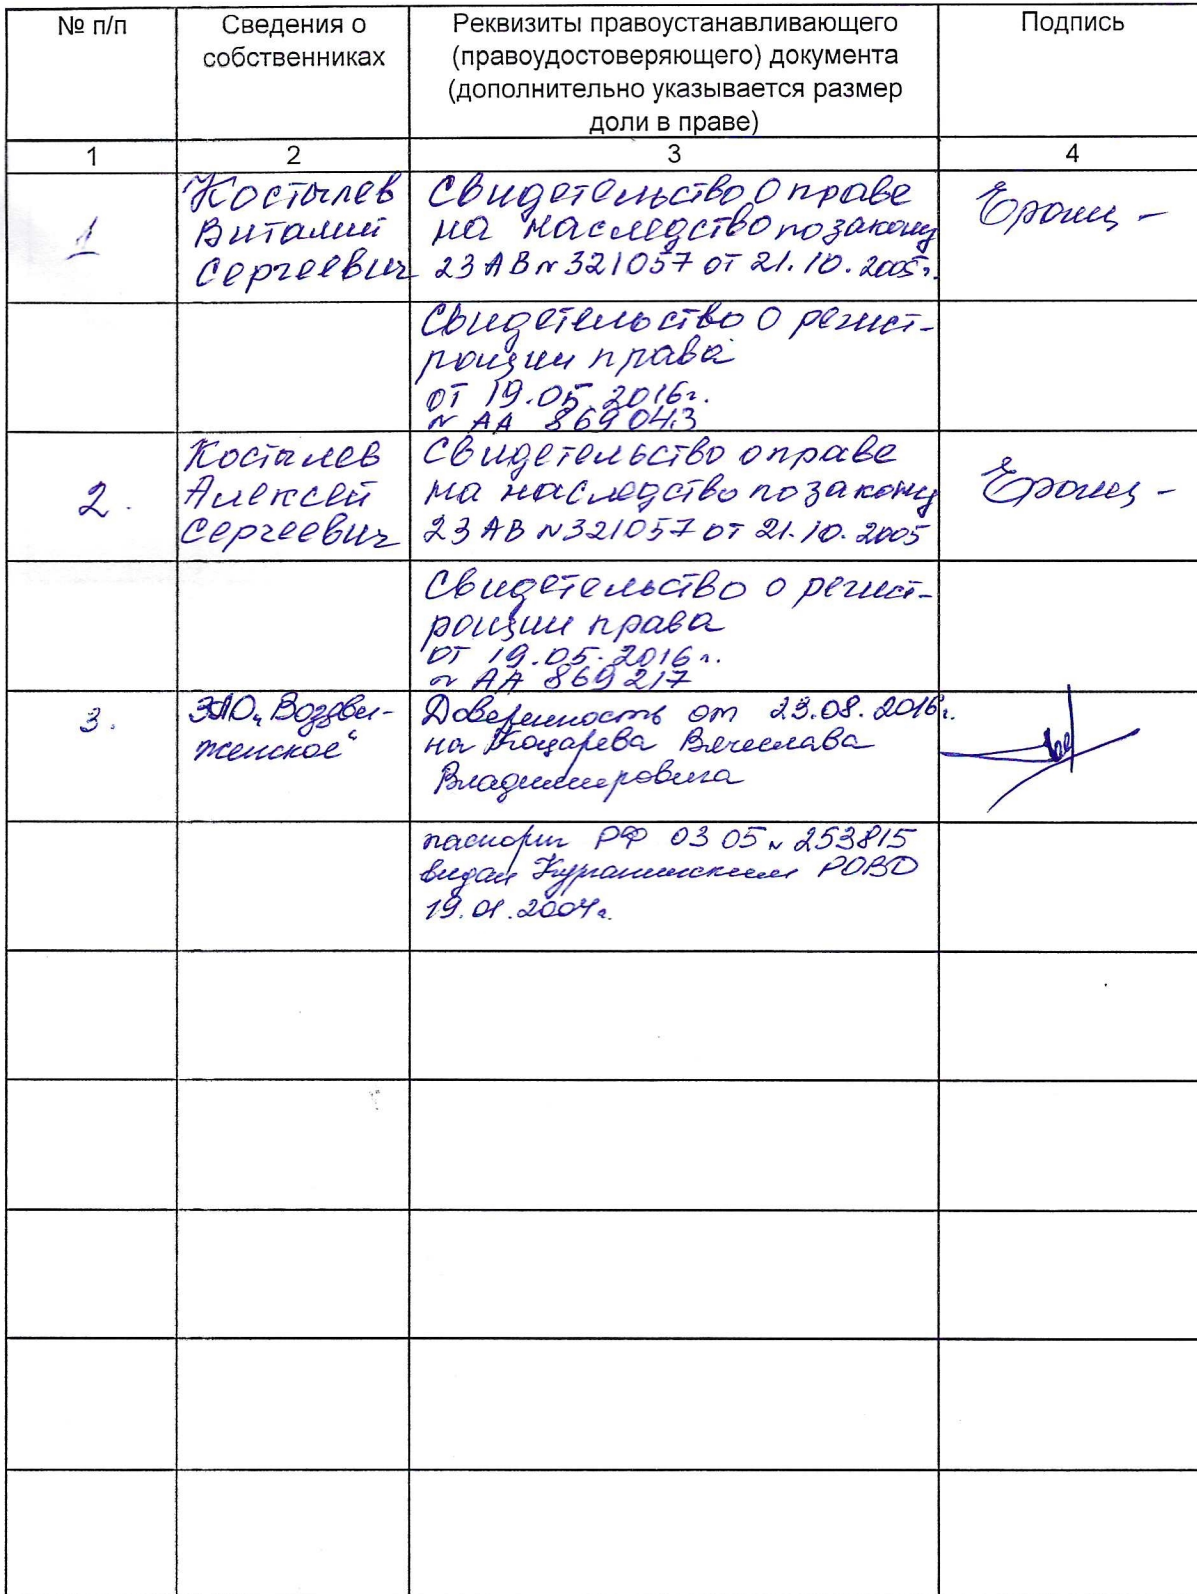 № п/п
Сведения о
собственниках
Реквизиты правоустанавливающего
(правоудостоверяющего) документа
(дополнительно указывается размер
доли в праве)
Подпись
1
2
3
4
1
Костылев
Виталий
Сергеевич
Свидетельство о праве
на наследство по закону
23 АВ № 321057 от 21.10.2005г.
Свидетельство о регист-
рации права
от 19.05.2016г.
№ АА 869043
2.
Костылев
Алексей
Сергеевич
Свидетельство о праве
на наследство по закону
23 АВ № 321057 от 21.10.2005
Свидетельство о регист-
рации права
от 19.05.2016г.
№ АА 869217
3.
ЗАО „Воздви-
женское“
Доверенность от 23.08.2016г.
на Вячеслава
Владимировича
паспорт РФ 03 05 № 253815
выдан Курганинским РОВД
19.01.2004г.